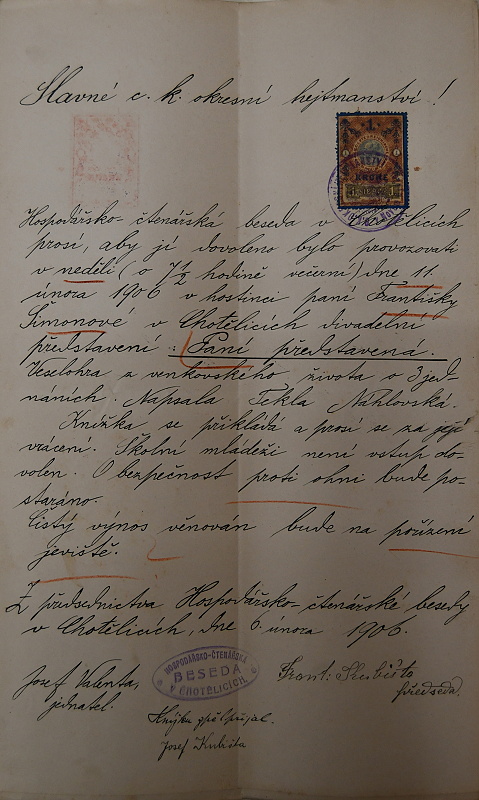 Slavné c. k. okresní hejtmanství!
1
KRONE
Hospodářsko-čtenářská beseda v Chotělicích
prosí, aby jí dovoleno bylo provozovati
v neděli (o 7 1/2 hodině večerní) dne 11.
února 1906 v hostinci paní Františky
Šimonové v Chotělicích divadelní
představení: „Paní představená.
Veselohra z venkovského života o 3 jed-
náních. Napsala Tekla Náhlovská.
Knížka se přikládá a prosí se za její
vrácení. Školní mládeži není vstup do-
volen. O bezpečnost proti ohni bude po-
staráno.
Čistý výnos věnován bude na pořízení
jeviště.
Z předsednictva Hospodářsko-čtenářské besedy
v Chotělicích, dne 6. února 1906.
Josef Valenta,
jednatel.
HOSPODÁŘSKO-ČTENÁŘSKÁ
BESEDA
V CHOTĚLICÍCH
Frant:
předseda.
Knížku zpět přijal.
Josef Kubišta